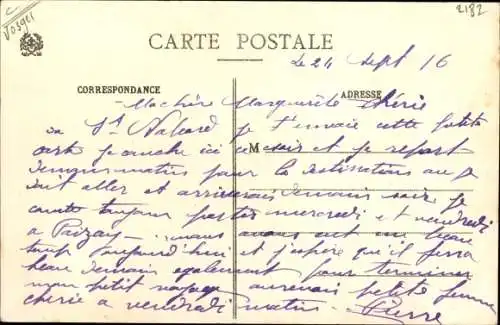 Vosges
2182
CARTE POSTALE
Le 24 Sept 16
CORRESPONDANCE
ADRESSE
Ma chère Marguerite chérie
St Nabord je t'envoie cette petite
carte je couche ici ce soir et je repart
M
demain matin pour la destination ou je
doit aller et arriverais demain soir je
compte toujour partir mercredi et vendredi
a nous avons eut un beau
temp aujourd'hui et j'espère qu'il ferra
beau demain egalement pour terminer
mon petit voyage aurevoir petite femme
cherie a vendredi matin Pierre